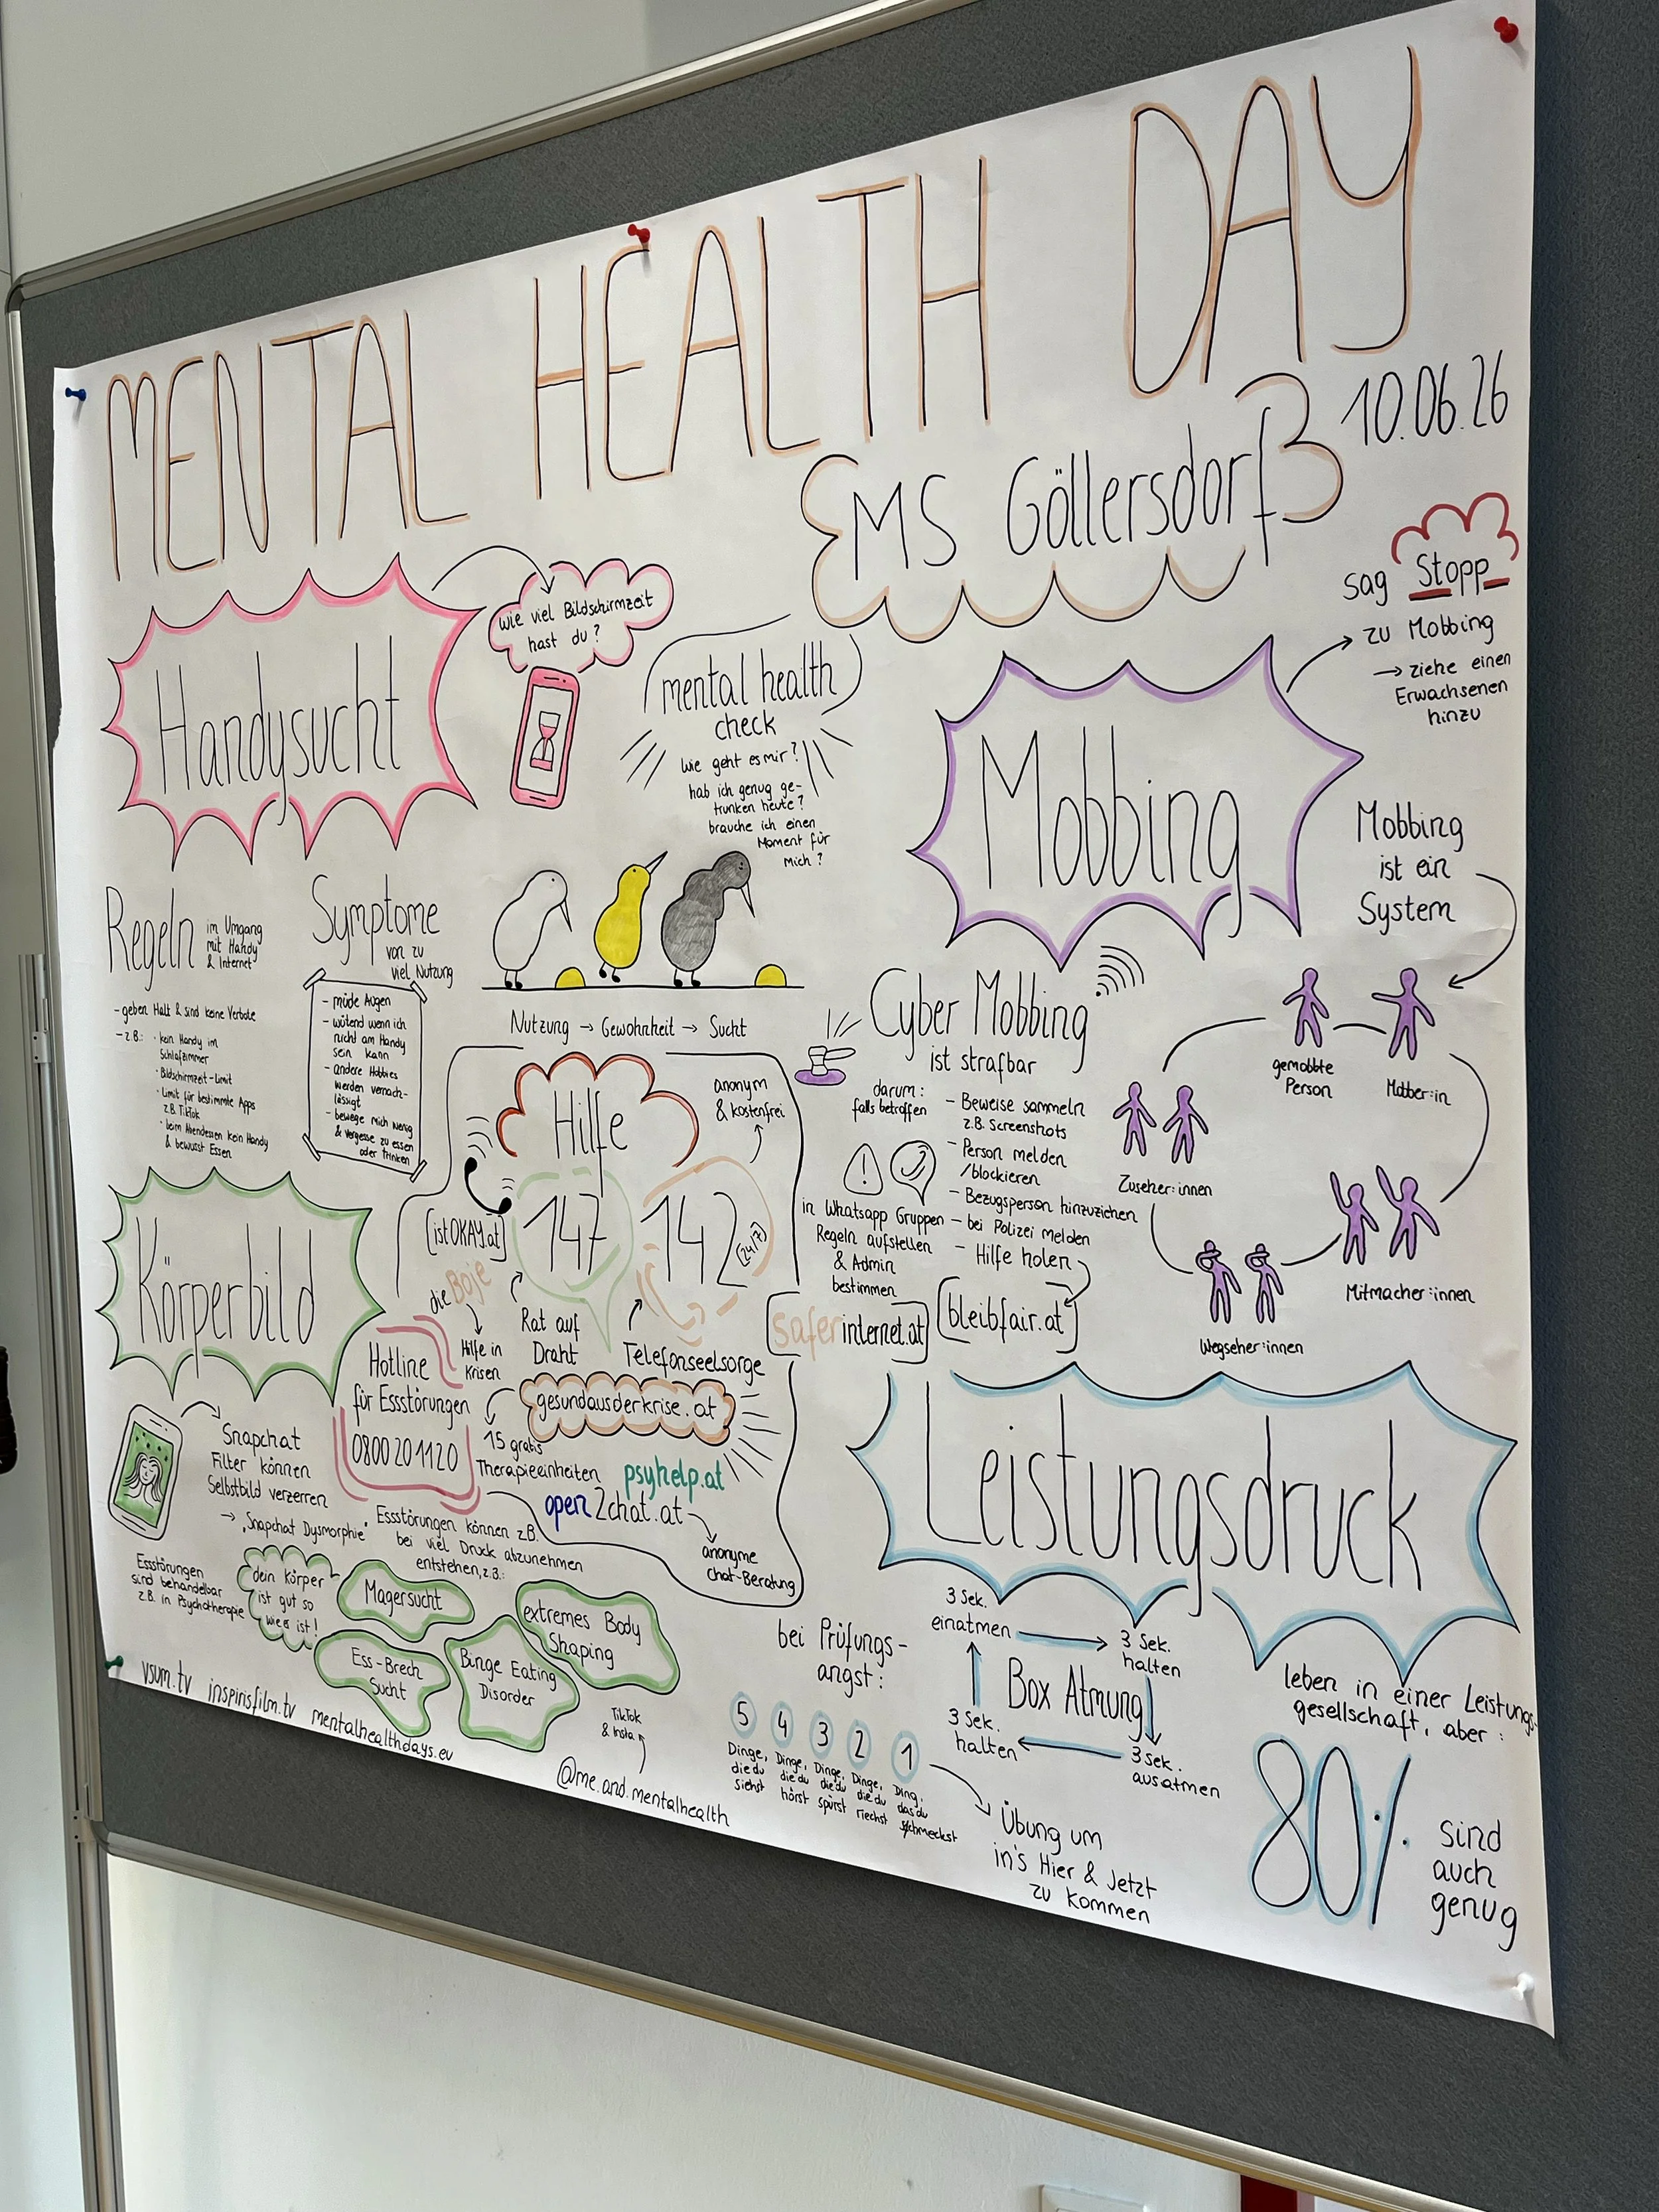 MENTAL HEALTH DAY
MS Göllersdorf
10.06.26
Handysucht
wie viel Bildschirmzeit
hast du?
mental health
check
Wie geht es mir?
hab ich genug ge-
trunken heute?
brauche ich einen
Moment für
mich?
Regeln
im Umgang
mit Handy
& Internet
- geben Halt & sind keine Verbote
- z.B.: · kein Handy im
Schlafzimmer
· Bildschirmzeit-Limit
· Limit für bestimmte Apps
z.B. TikTok
· beim Abendessen kein Handy
& bewusst Essen
Symptome
von zu
viel Nutzung
- müde Augen
- wütend wenn ich
nicht am Handy
sein kann
- andere Hobbies
werden vernach-
lässigt
- bewege mich wenig
& vergesse zu essen
oder trinken
Nutzung → Gewohnheit → Sucht
Mobbing
sag Stopp
zu Mobbing
→ ziehe einen
Erwachsenen
hinzu
Mobbing
ist ein
System
gemobbte
Person
Mobber:in
Zuseher:innen
Mitmacher:innen
Wegseher:innen
Cyber Mobbing
ist strafbar
darum:
falls betroffen
- Beweise sammeln
z.B. Screenshots
- Person melden
/blockieren
- Bezugsperson hinzuziehen
- bei Polizei melden
- Hilfe holen
in Whatsapp Gruppen
Regeln aufstellen
& Admin
bestimmen
saferinternet.at
bleibfair.at
Hilfe
anonym
& kostenfrei
istOKAY.at
147
142
(24/7)
die Boje
Hilfe in
Krisen
Rat auf
Draht
Telefonseelsorge
gesundausderkrise.at
15 gratis
Therapieeinheiten
psyhelp.at
open2chat.at
anonyme
chat-Beratung
Körperbild
Hotline
für Essstörungen
0800 20 11 20
Snapchat
Filter können
Selbstbild verzerren
→ "Snapchat Dysmorphie"
Essstörungen können z.B.
bei viel Druck abzunehmen
entstehen, z.B.:
Essstörungen
sind behandelbar
z.B. in Psychotherapie
dein Körper
ist gut so
wie er ist!
Magersucht
extremes Body
Shaping
Ess-Brech
Sucht
Binge Eating
Disorder
vsum.tv inspirisfilm.tv mentalhealthdays.eu
TikTok
& Insta
@me.and.mentalhealth
Leistungsdruck
bei Prüfungs-
angst:
3 Sek.
einatmen
3 Sek.
halten
Box Atmung
3 Sek.
halten
3 Sek.
ausatmen
5
Dinge,
die du
siehst
4
Dinge,
die du
hörst
3
Dinge,
die du
spürst
2
Dinge,
die du
riechst
1
Ding,
das du
schmeckst
Übung um
in's Hier & Jetzt
zu kommen
leben in einer Leistungs-
gesellschaft, aber:
80%
sind
auch
genug